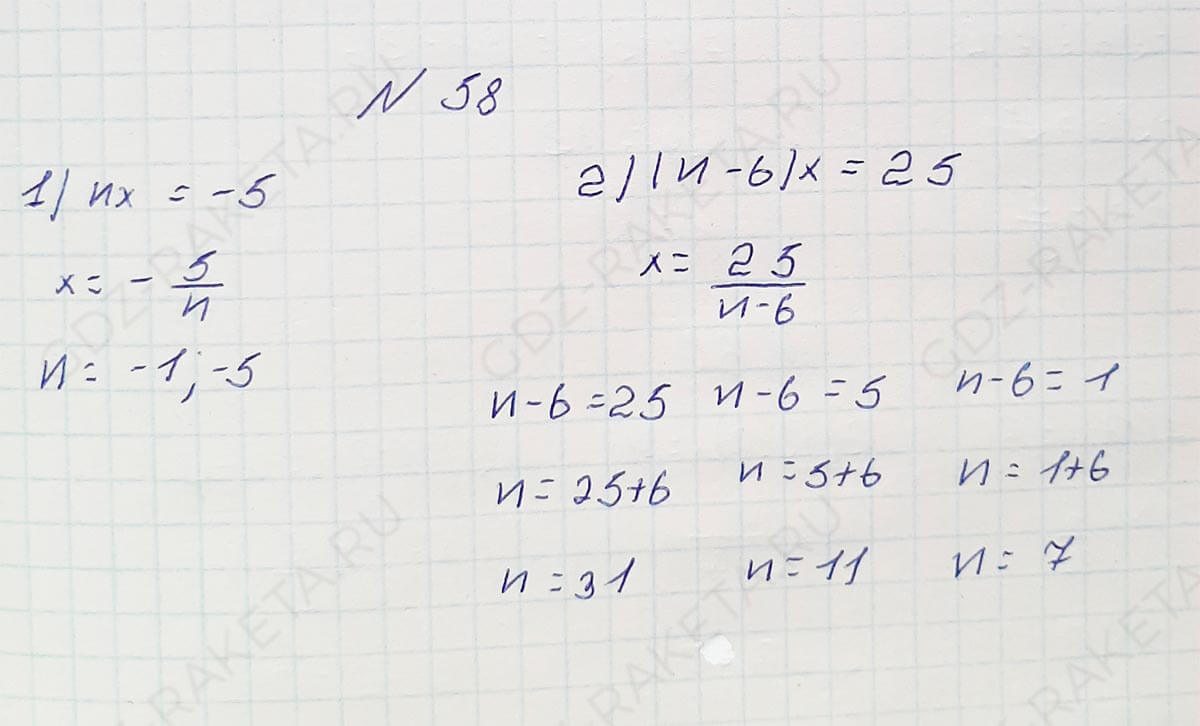 N 58
1) nx = -5
x = - 5/n
n = -1; -5
2) (n-6)x = 25
x = 25/n-6
n-6=25 n-6 = 5 n-6= 1
n= 25+6 n=5+6 n = 1+6
n = 31 n=11 n= 7
GDZ-RAKETA.RU
GDZ-RAKETA.RU
GDZ-RAKETA.RU
GDZ-RAKETA.RU
GDZ-RAKETA.RU